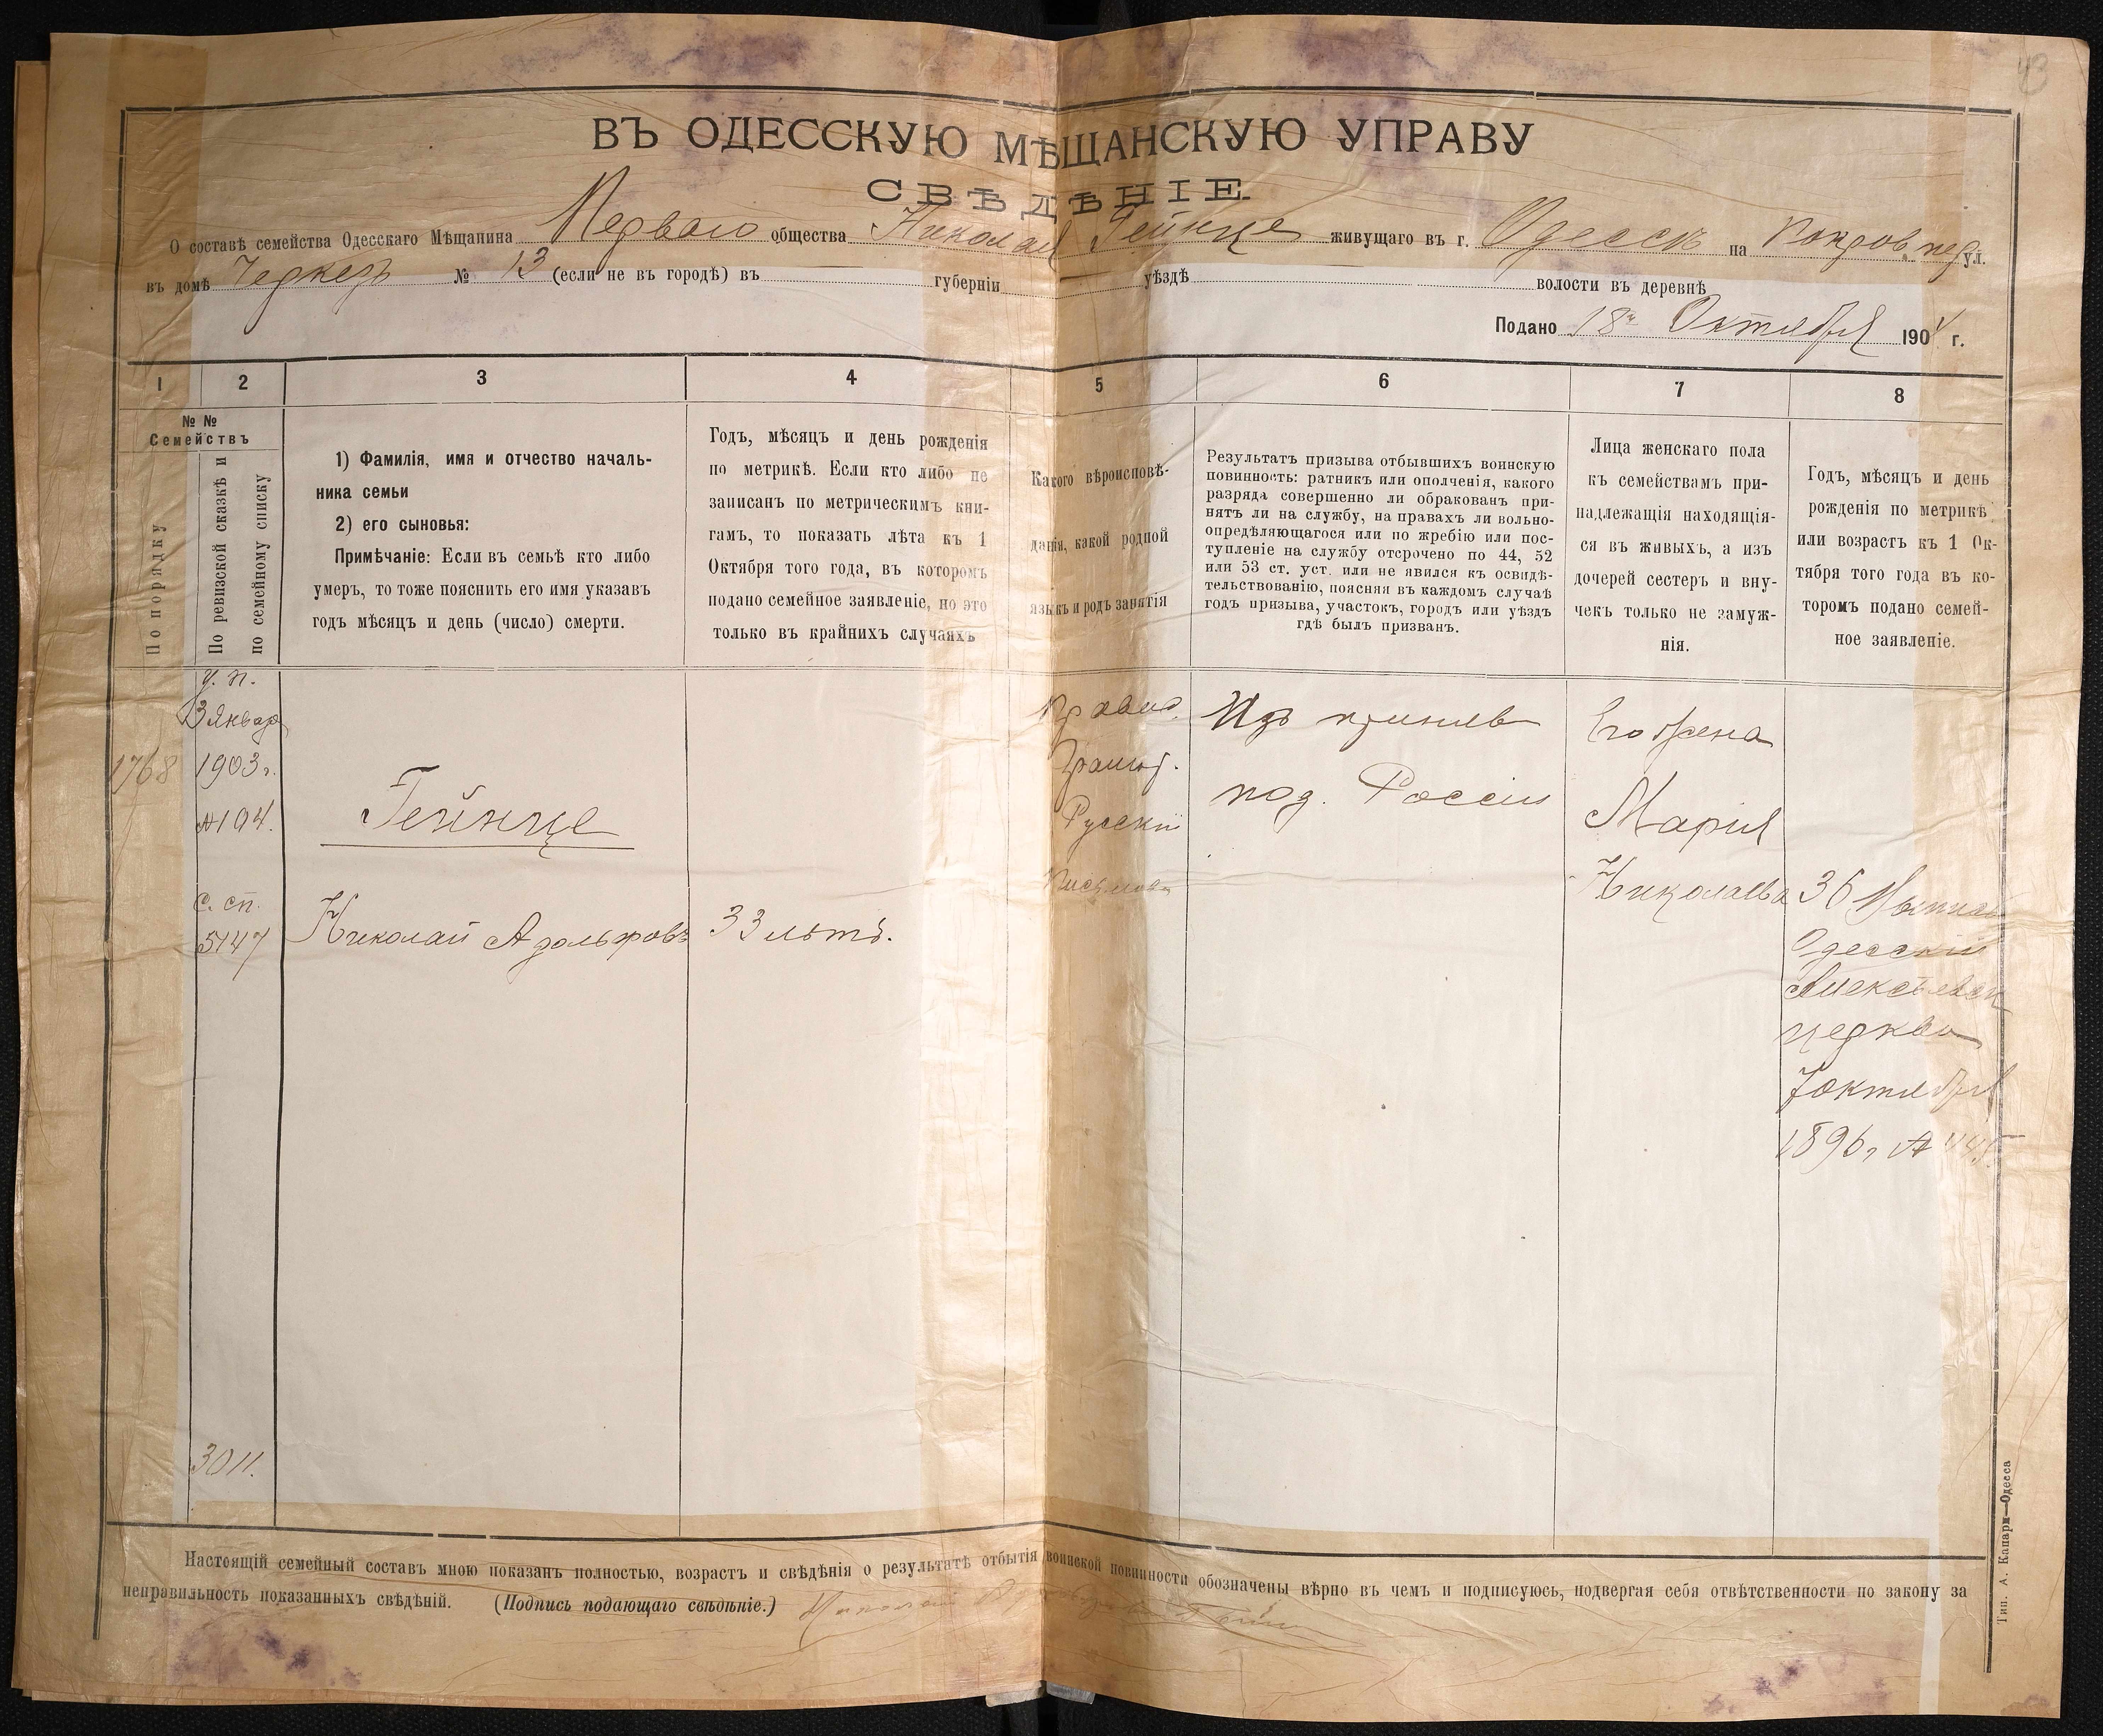 43
ВЪ ОДЕССКУЮ МѢЩАНСКУЮ УПРАВУ
СВѢДѢНІЕ
О составѣ семейства Одесскаго Мѣщанина Перваго общества Николая Гейнце живущаго въ г. Одессѣ на Покров. пер ул.
въ домѣ Черкезъ № 13 (если не въ городѣ) въ губерніи уѣздѣ волости въ деревнѣ
Подано 18 Октября 1904 г.
1 2 3 4 5 6 7 8
№№
Семействъ
По порядку
По ревизской сказкѣ и
по семейному списку
1) Фамилія, имя и отчество началь-
ника семьи
2) его сыновья:
Примѣчаніе: Если въ семьѣ кто либо
умеръ, то тоже пояснить его имя указавъ
годъ мѣсяцъ и день (число) смерти.
Годъ, мѣсяцъ и день рожденія
по метрикѣ. Если кто либо не
записанъ по метрическимъ кни-
гамъ, то показать лѣта къ 1
Октября того года, въ которомъ
подано семейное заявленіе, но это
только въ крайнихъ случаяхъ
Какого вѣроисповѣ-
данія, какой родной
языкъ и родъ занятія
Результатъ призыва отбывшихъ воинскую
повинность: ратникъ или ополченія, какого
разряда совершенно ли обракованъ при-
нятъ ли на службу, на правахъ ли вольно-
опредѣляющагося или по жребію или пос-
тупленіе на службу отсрочено по 44, 52
или 53 ст. уст. или не явился къ освидѣ-
тельствованію, поясняя въ каждомъ случаѣ
годъ призыва, участокъ, городъ или уѣздъ
гдѣ былъ призванъ.
Лица женскаго пола
къ семействамъ при-
надлежащія находящія-
ся въ живыхъ, а изъ
дочерей сестеръ и вну-
чекъ только не замуж-
нія.
Годъ, мѣсяцъ и день
рожденія по метрикѣ
или возрастъ къ 1 Ок-
тября того года въ ко-
торомъ подано семей-
ное заявленіе.
1768
у. п.
3 Января
1903 г.
№ 194.
с. сп.
5147
3011.
Гейнце
Николай Адольфовъ
33 лѣтъ.
Правос.
Грамот.
Русскій
Изъ приняв
под. Россіи
Его жена
Марія
Николаева
36
Одесской
Алексѣевск
церкви
7 октября
1896 г №
Настоящій семейный составъ мною показанъ полностью, возрастъ и свѣдѣнія о результатѣ отбытія воинской повинности обозначены вѣрно въ чемъ и подписуюсь, подвергая себя отвѣтственности по закону за
неправильность показанныхъ свѣдѣній. (Подпись подающаго свѣдѣніе.) Николай
Тип. А. Капарм—Одесса